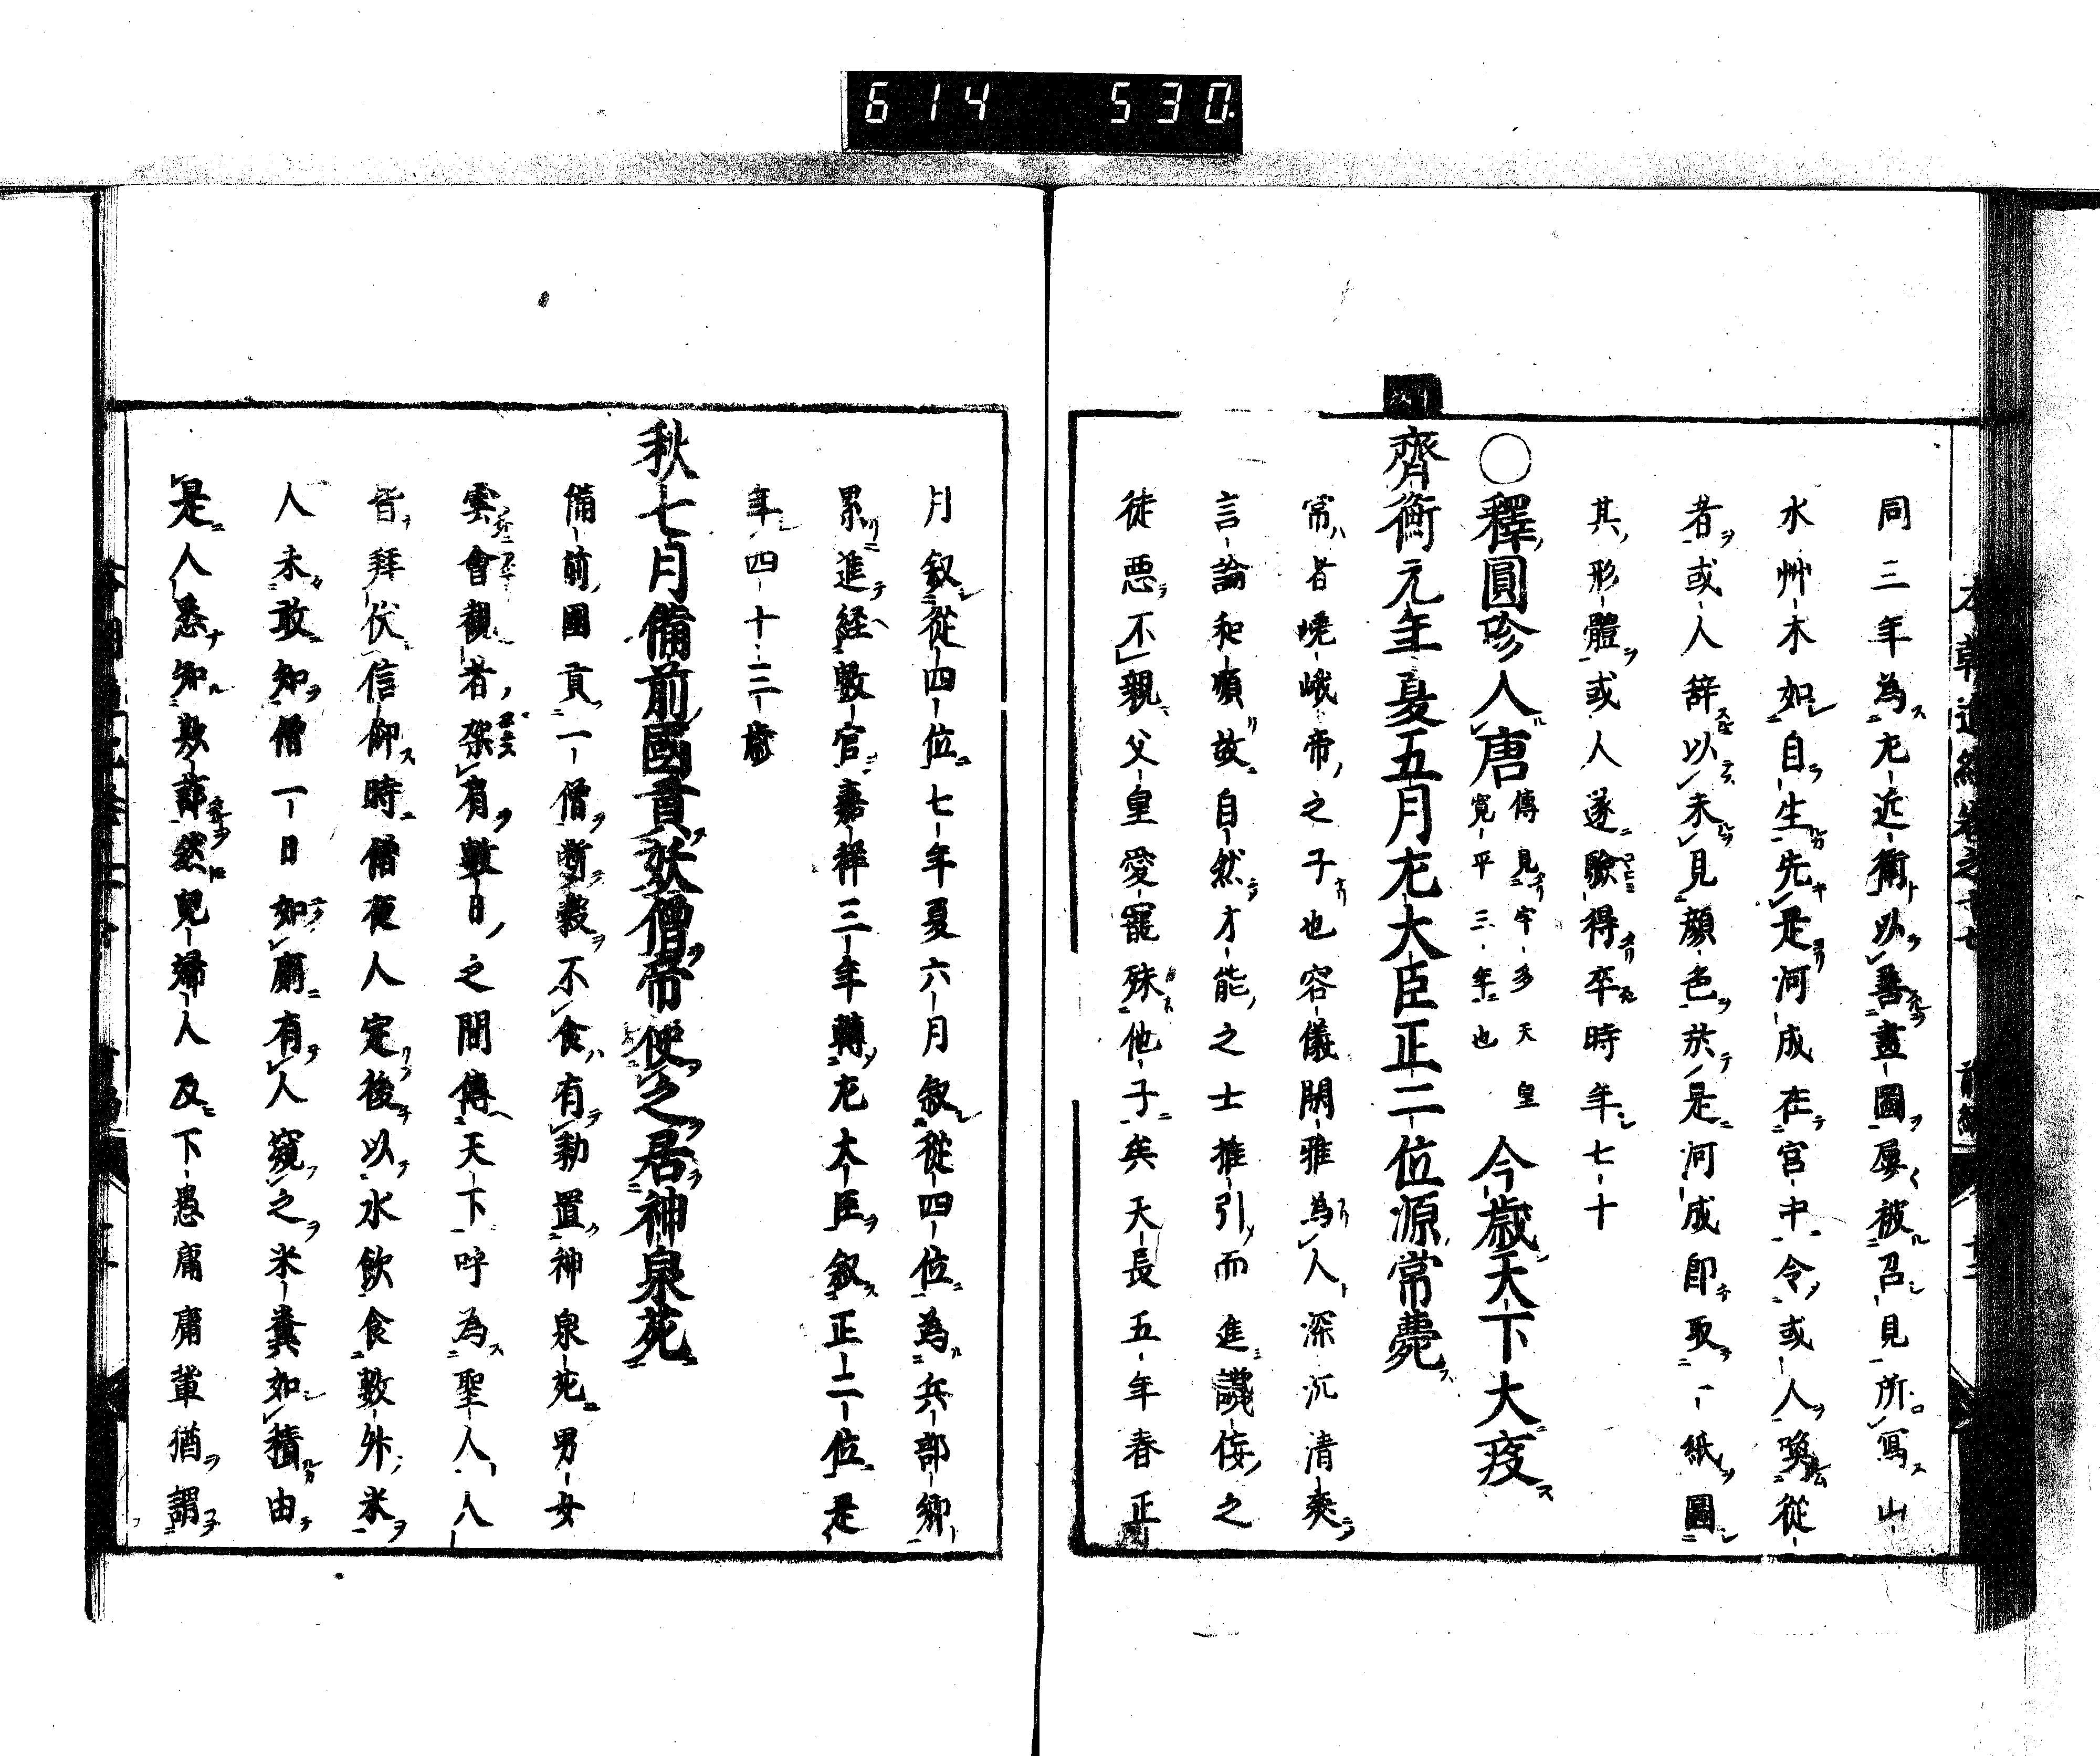 614 530
同三年為左近衞以善畫圖屢被召見所寫山
水艸木如自生先是河成在宮中令或人喚從
者或人辞以未見顔色於是河成即取一紙圖
其形體或人遂驗得卒時年七十
○釋圓珍入唐傳見宇多天皇寛平三年也今歳天下大疫
齊衡元年夏五月左大臣正二位源常薨
常者嵯峨帝之子也容儀閑雅為人深沉清爽
言論和順故自然才能之士推引而進讒侫之
徒惡不親父皇愛寵殊他子矣天長五年春正
月叙從四位七年夏六月叙從四位為兵部卿
累進経數官嘉祥三年轉左大臣叙正二位是
年四十三歳
秋七月備前國貢妖僧帝使之居神泉苑
備前國貢一僧斷穀不食有勅置神泉苑男女
雲會觀者架肩數日之間傳天下呼為聖人人
皆拜伏信仰時僧夜人定後以水飲食數升米
人未敢知僧一日如廁有人窺之米糞如積由
是人悉知欺詐然兒婦人及下愚庸庸輩猶謂